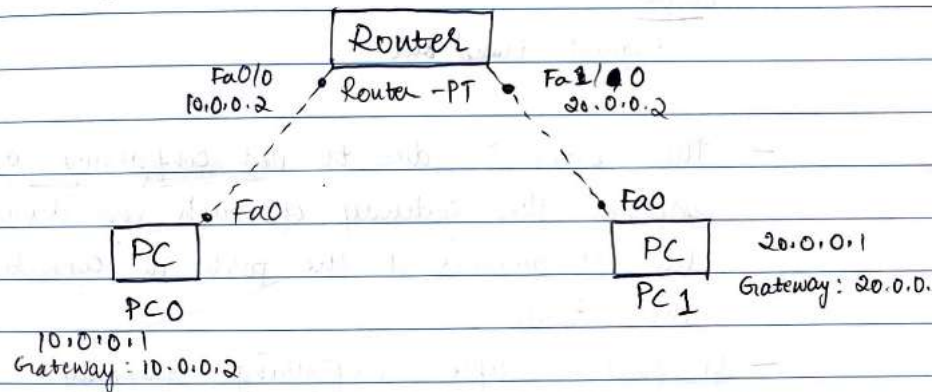 Router
Fa0/0
10.0.0.2
Router-PT
Fa1/0
20.0.0.2
Fa0
Fa0
PC
PC0
10.0.0.1
Gateway: 10.0.0.2
PC
PC1
20.0.0.1
Gateway: 20.0.0.